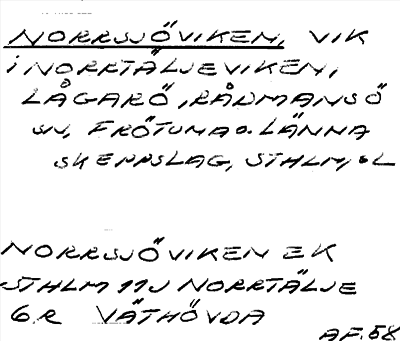 NORRSJÖVIKEN, VIK
i NORRTÄLJEVIKEN,
LÅGARÖ, RÅDMANSÖ
SN, FRÖTUNA O. LÄNNA
SKEPPSLAG, STHLM, L
NORRSJÖVIKEN EK
STHLM 11J NORRTÄLJE
6 R VÄTHÖVDA
AF. 58